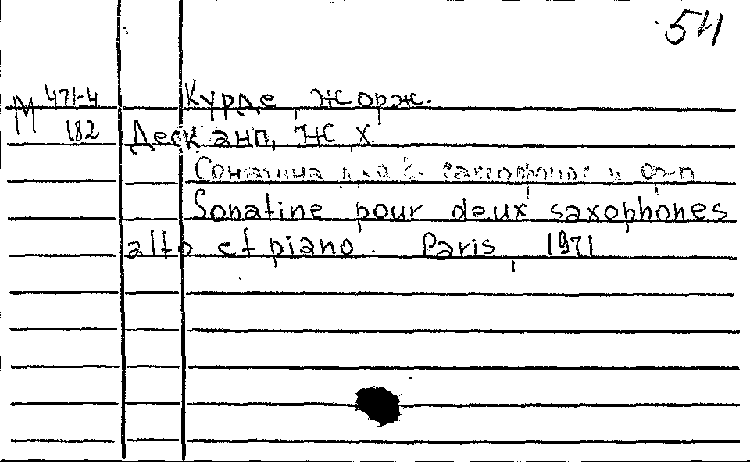 54
М 471-4 Курде, Жорж.
182 Десканп, Ж Х
Сонатина для 2 саксофонов и ф-п
Sonatine pour deux saxophones
alto et piano. Paris, 1971